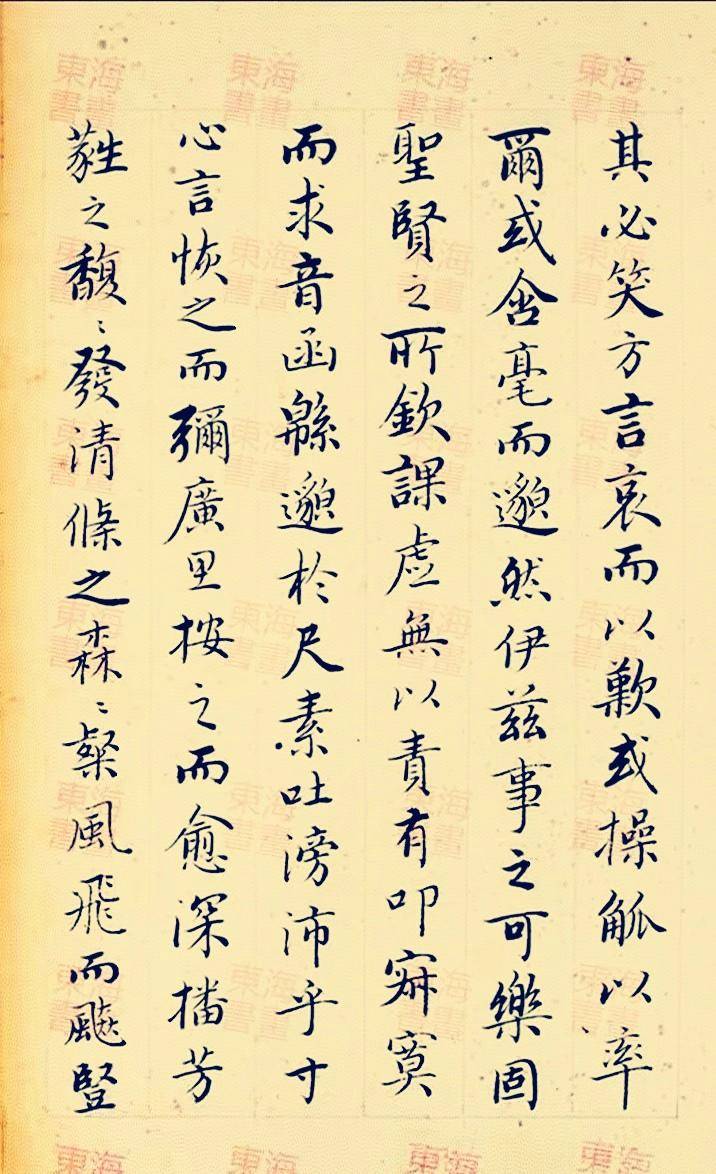 其必笑方言哀而以歎或操觚以率
爾或含毫而邈然伊茲事之可樂固
聖賢之所欽課虛無以責有叩寂寞
而求音函緜邈於尺素吐滂沛乎寸
心言恢之而彌廣思按之而愈深播芳
蕤之馥〻發清條之森〻粲風飛而飈豎
東海
書畫